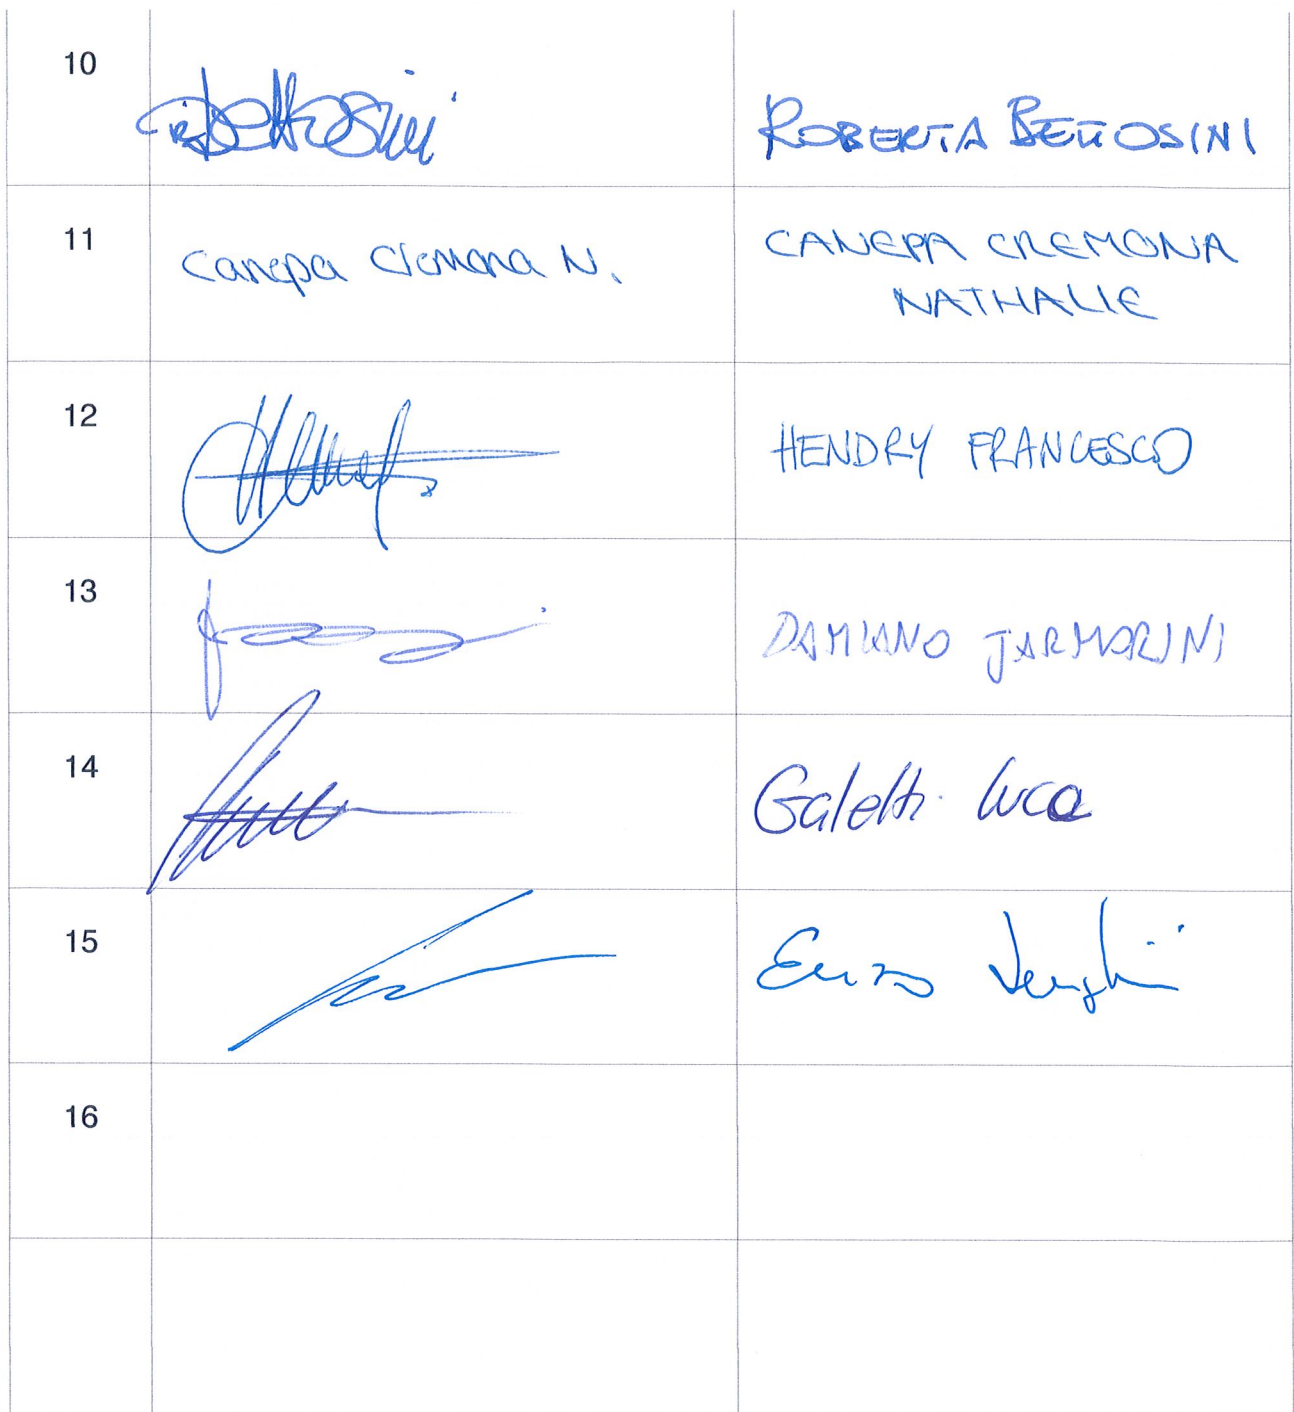 10
Bettosini ROBERTA BETTOSINI
11
Canepa Cremona N. CANEPA CREMONA
NATHALIE
12
HENDRY FRANCESCO
13
DAMIANO JARMORINI
14
Galetti Luca
15
Enzo
16